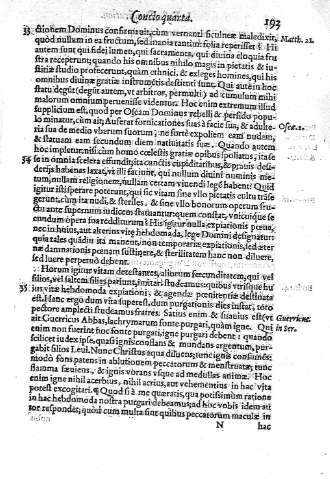 Concio quarta. 193
33 ctionem Dominus confirmauit, cùm vernanti ficulneæ maledixit, Matth. 21.
quòd nullum in ea fructum, sed inania tantùm folia reperisset? Hi
autem sunt qui fidei lumen, qui sacramenta, qui diuina eloquia fru
stra receperunt; quando his omnibus nihilo magis in pietatis & iu
stitiæ studio profecerunt, quàm ethnici, & exleges homines, qui his
omnibus diuinæ gratiæ instrumentis destituti sunt. Qui autem in hoc
statu degūt (degūt autem, vt arbitror, permulti) ad cumulum
malorum omnium peruenisse videntur. Hoc enim extremum illud
supplicium est, quod per Oseam Dominus rebelli & perfido popu-
lo minatur, cùm ait; Auferat fornicationes suas à facie sua, & adulte- Oseæ. 2.
ria sua de medio vberum suorum; ne fortè expoliem eam nudam,
& statuam eam secundum diem natiuitatis suæ. Quando autem
hoc impletur, nisi cùm homo cœlestis gratiæ opibus spoliatus, ita se
34 se in omnia scelera effundit, vt à cunctis cupiditatibus, & prauis desi-
derijs habenas laxet, vt illi faciunt, qui nullum diuini numinis me-
tum, nullam religionem, nullam certam viuendi legē habent? Quid
igitur isti sperare poterunt, qui sic vitam sine vllo pietatis cultu trāse-
gerunt, cùm ita nudi, & steriles, & sine vllo bonorum operum
ante supernum iudicem statuantur; quem constat, vnicuique se
cundum opera redditurum? His igitur nulla expiationis pœna,
nec in huius, aut alterius vitæ hebdomada, lege Domini designatur:
quia tales quādiu ita manent, non temporariæ expiationis, sed æter
næ damnationis pœnam sustinere, & sterilitatem hanc non diluere,
sed luere perpetuò debent.
Horum igitur vitam detestantes, aliorum fecunditatem, qui vel
filios, vel saltem filias pariunt, imitari studeamus: quibus vtrisque hu
35 ius vitæ hebdomada expiationi, & agendæ pœnitentiæ destinata
est. Hanc ergo dum vita superest, dum purgationis dies instat, toto
pectore amplecti studeamus fratres. Satius enim & suauius est, vt
ait Guerricus Abbas, lachrymarum fonte purgari, quàm igne. Qui Guerricus
enim non fuerint hoc fonte purgari, igne purgari debent: quando in Ser.
scilicet iudex ipse, quasi ignis conflans & mundans argentum, pur-
gabit filios Leui. Nunc Christus aqua diluens; tunc ignis consumēs:
modò fons patens in ablutionem peccatoris & menstruatæ, tunc
flamma sæuiens, & ignis vorans vsque ad medullas animæ. Hoc
enim igne nihil acerbius, nihil acrius, aut vehementius in hac vita
potest excogitari. ¶ Quòd si à me quæratis, qua potissimùm ratione
in hac hebdomada nostra purgari debeamus, ad hoc vobis idem au
tor respondet; quòd cùm multa sint quibus peccatorum maculæ in
N hac